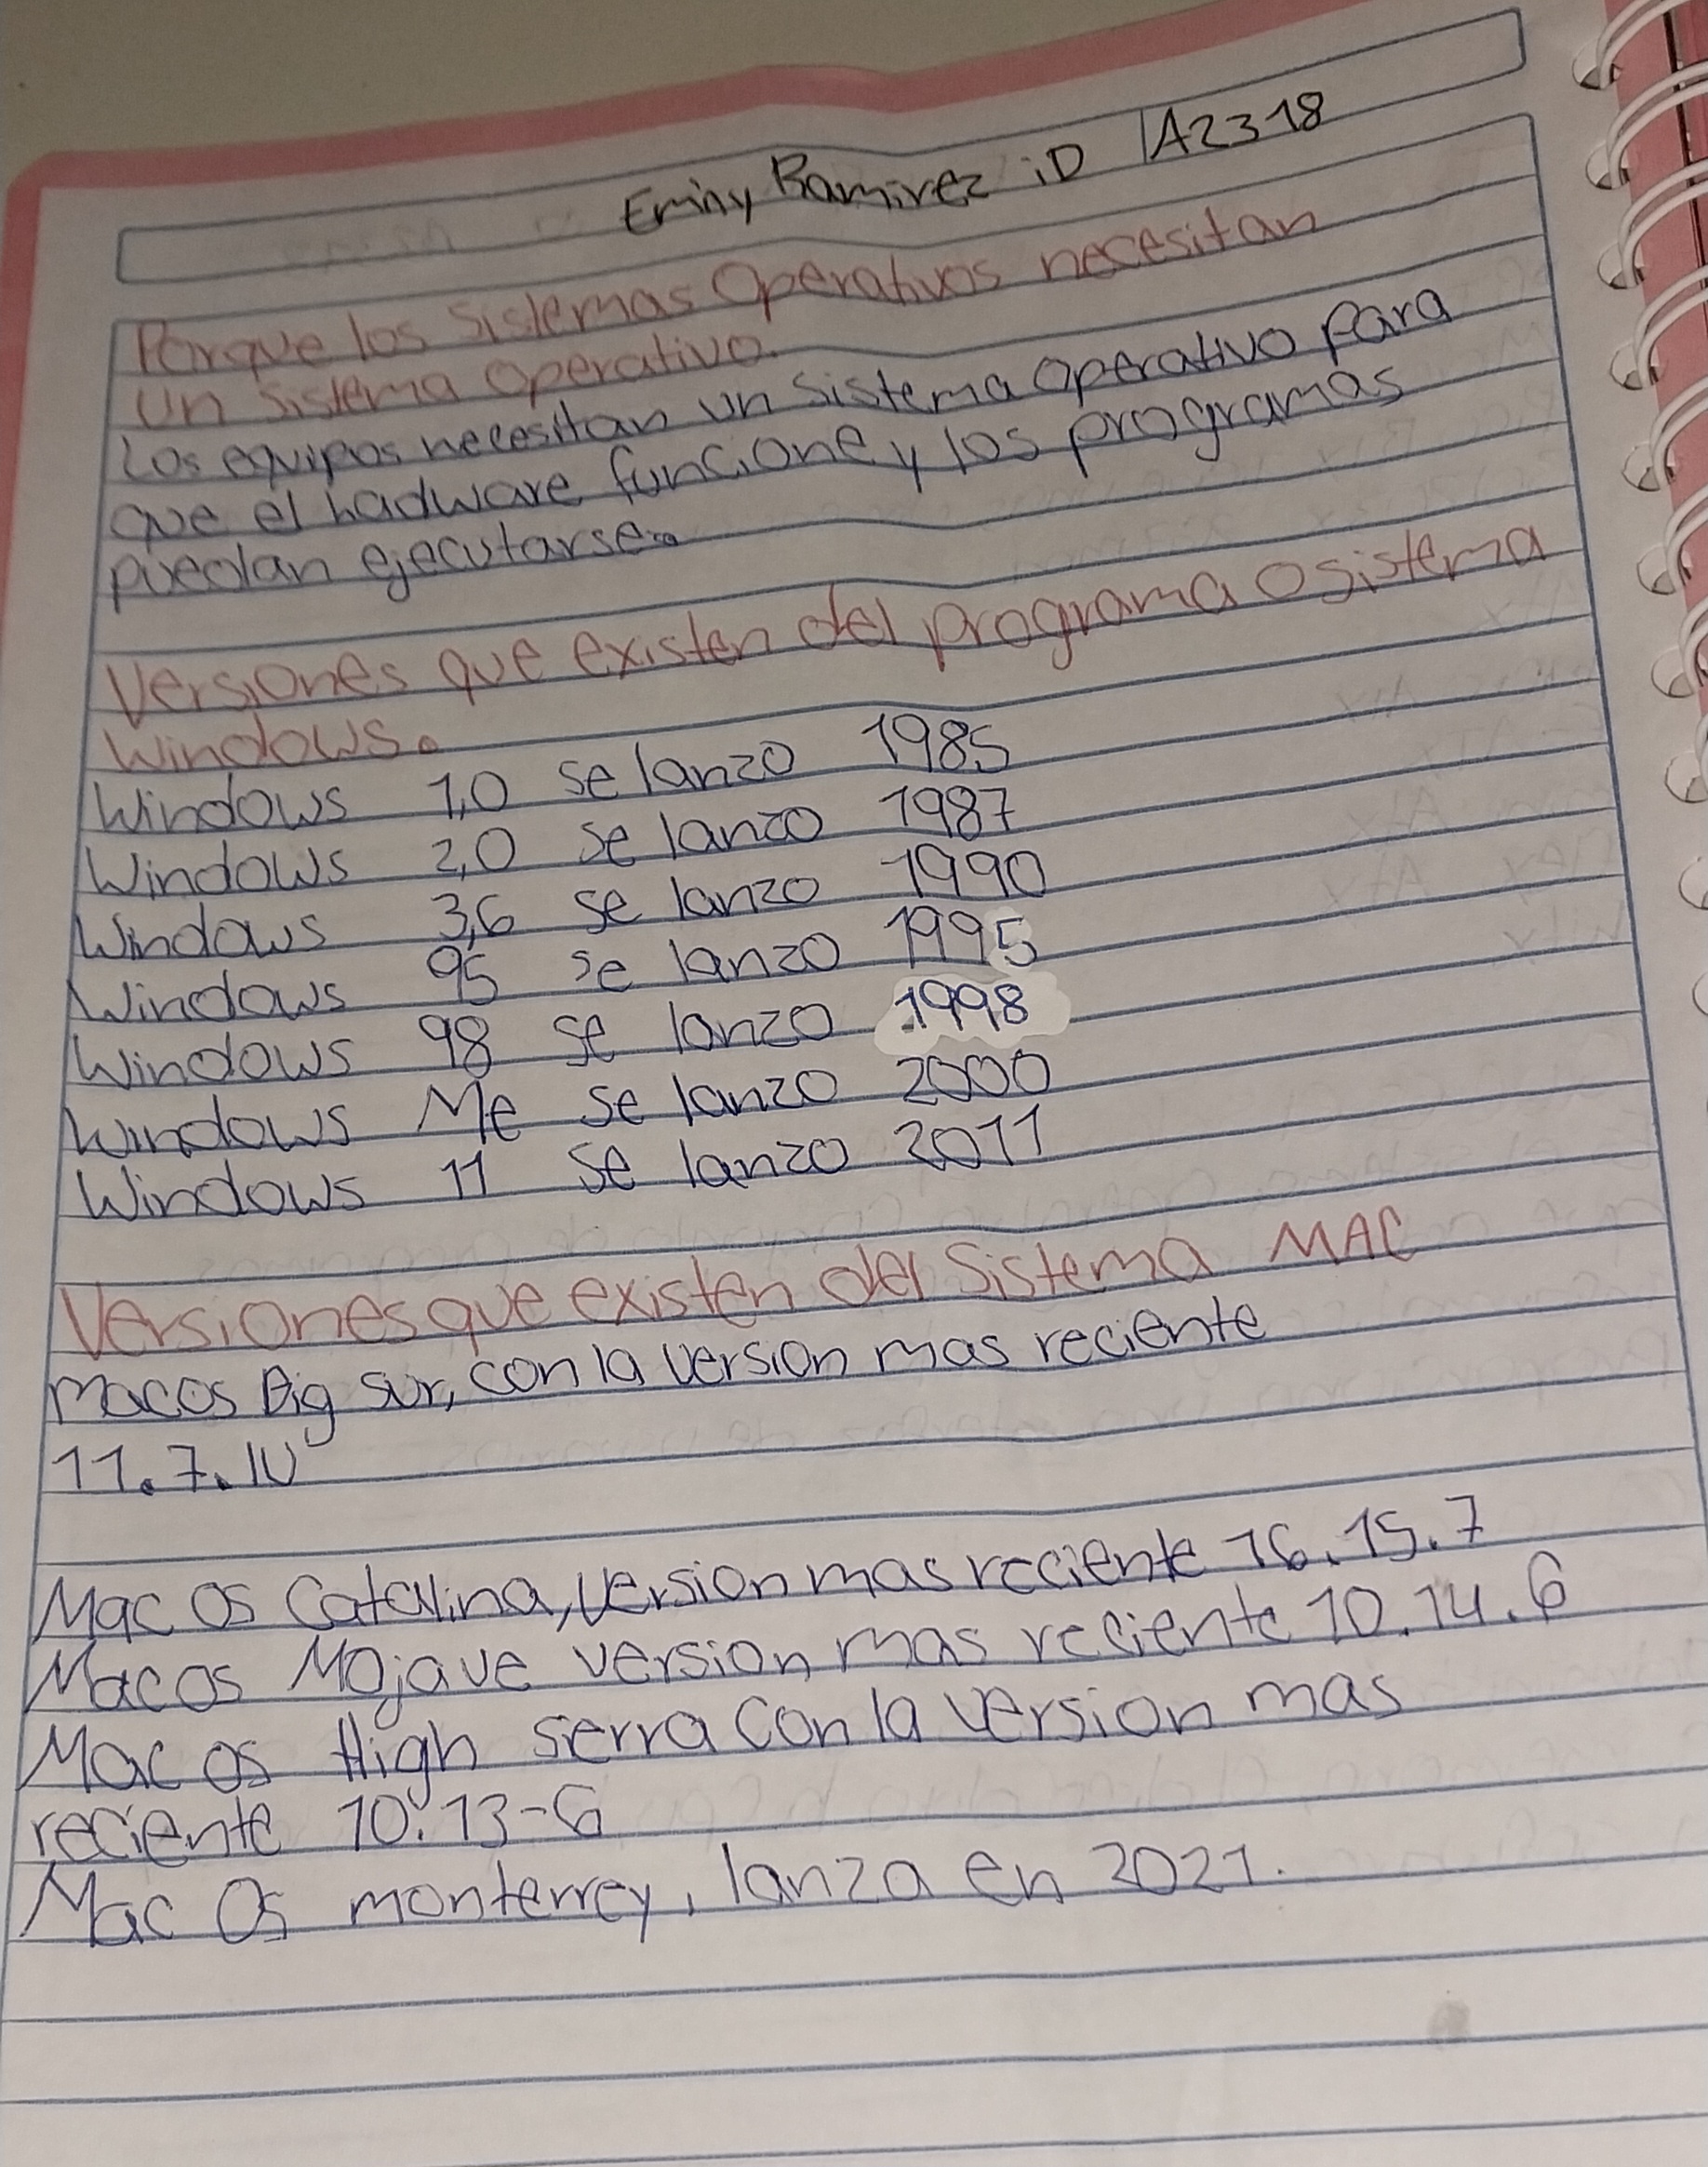 Eminy Ramirez iD 1A2318
Porque los Sistemas Operativos necesitan
un sistema operativo.
Los equipos necesitan un sistema operativo para
que el hadware funcione y los programas
puedan ejecutarse.
Versiones que existen del programa o sistema
Windows.
Windows 1,0 se lanzo 1985
Windows 2,0 se lanzo 1987
Windows 3,6 se lanzo 1990
Windows 95 se lanzo 1995
Windows 98 se lanzo 1998
Windows Me se lanzo 2000
Windows 11 se lanzo 2011
Versiones que existen del Sistema MAC
macos Big sur, con la version mas reciente
11.7.10
Mac Os Catalina, version mas reciente 16.15.7
Macos Mojave version mas reciente 10.14.6
Mac os High serra con la version mas
reciente 10.13-6
Mac Os monterrey, lanza en 2021.